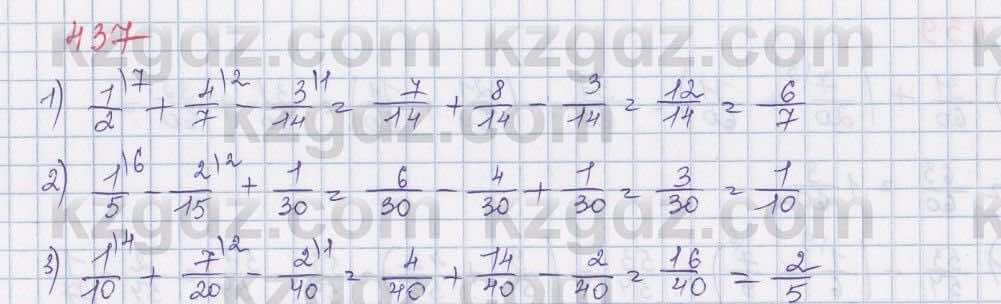 437
1) 1/2 )7 + 4/7 )2 - 3/14 )1 = 7/14 + 8/14 - 3/14 = 12/14 = 6/7
2) 1/5 )6 - 2/15 )2 + 1/30 = 6/30 - 4/30 + 1/30 = 3/30 = 1/10
3) 1/10 )4 + 7/20 )2 - 2/40 )1 = 4/40 + 14/40 - 2/40 = 16/40 = 2/5
kzgdz.com kzgdz.com
kzgdz.com
kzgdz.com kzgdz.com
kzgdz.com